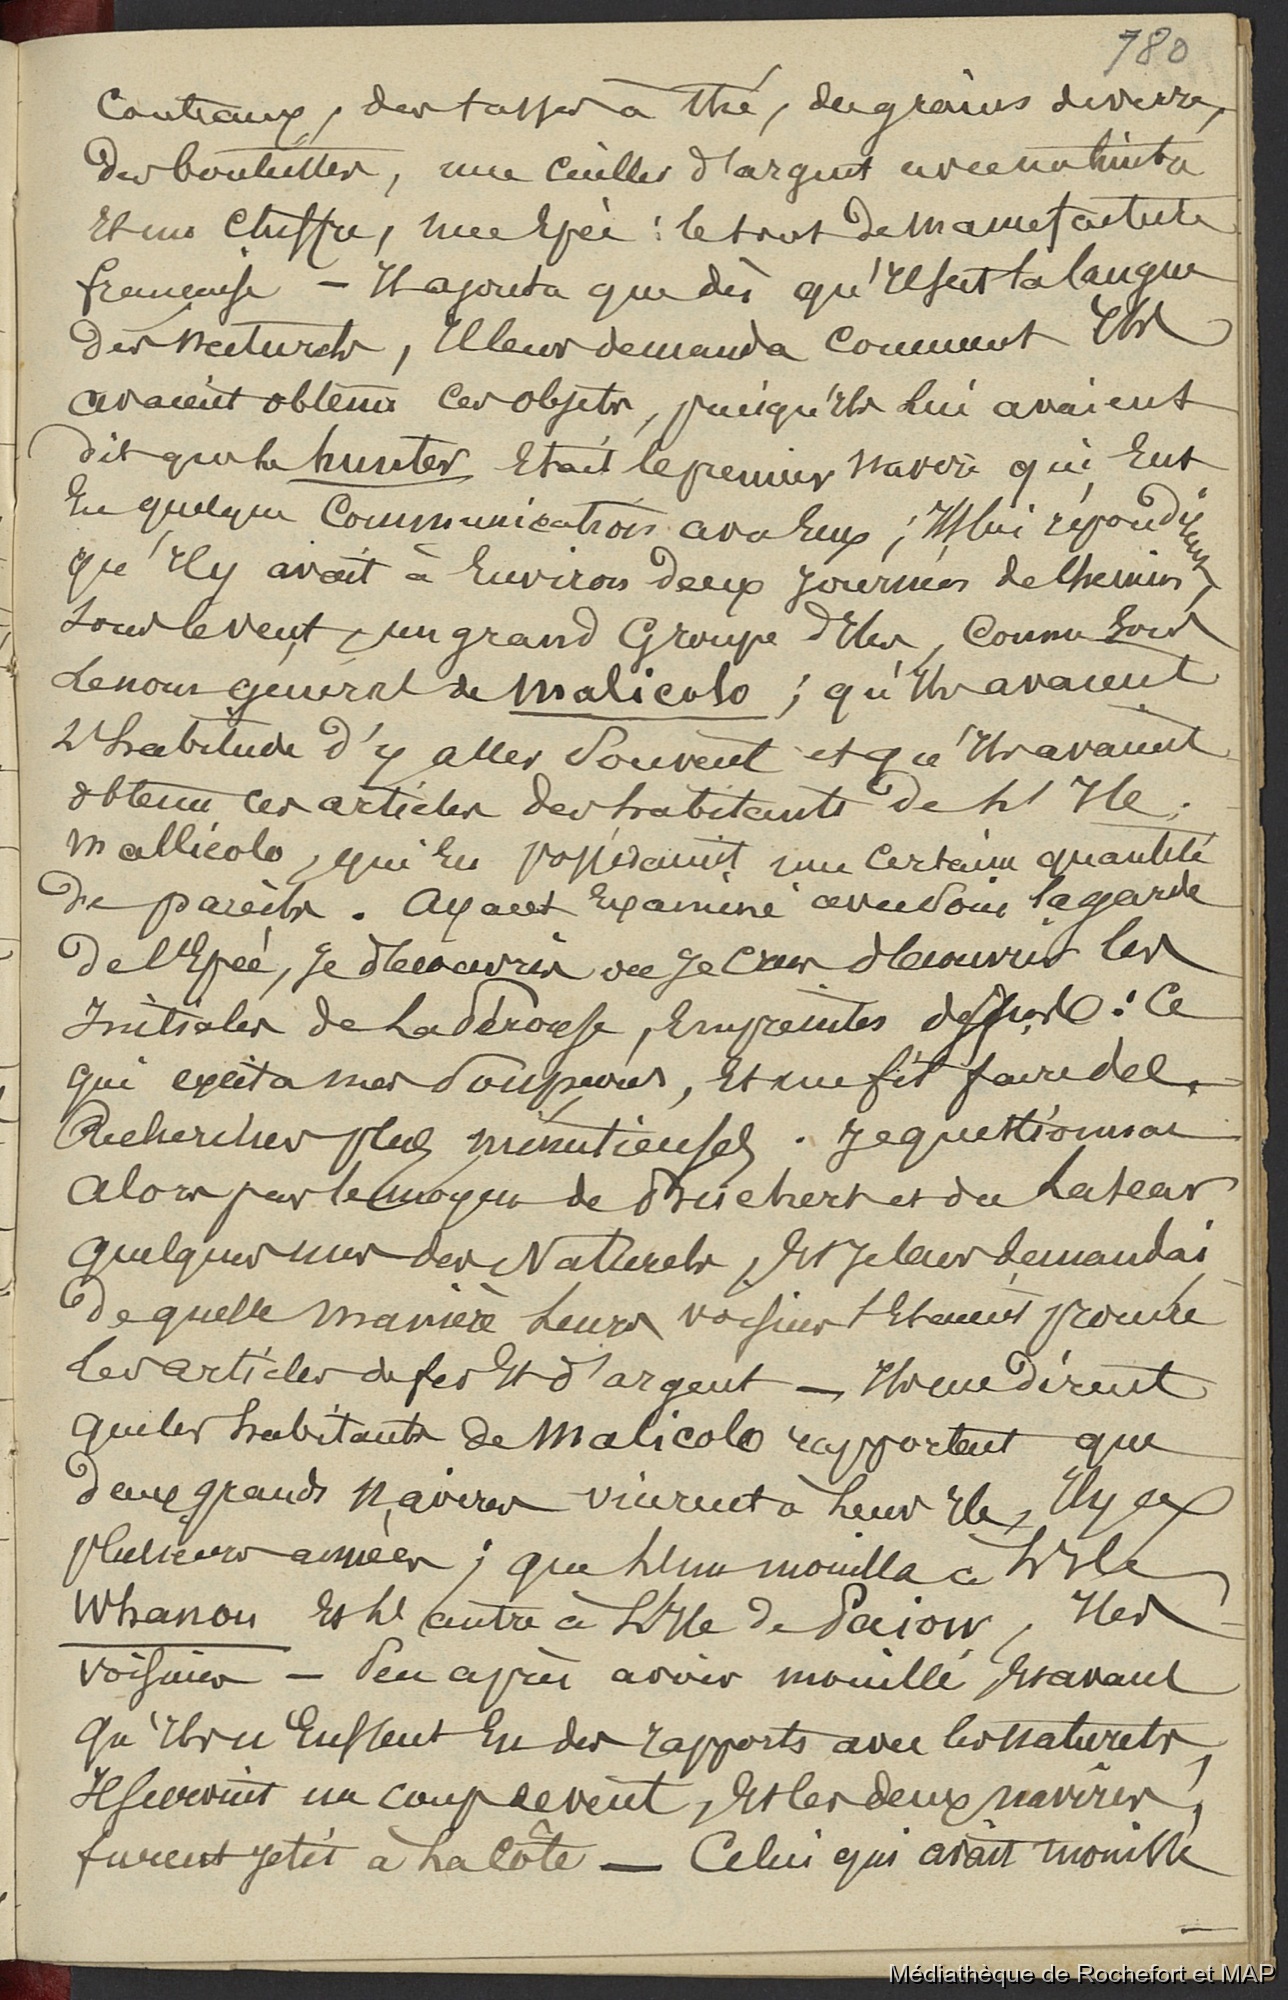 780
couteaux, des tasses à thé, des grains de verre,
des bouteilles, une cuiller d'argent avec
et un chiffre, une épée : le tout de manufacture
française — Il ajouta que dès qu'il sut la langue
des naturels, Il leur demanda comment Ils
avaient obtenu ces objets, puisqu'ils lui avaient
dit que le hunter était le premier navire qui eut
eu quelque communication avec eux ; Ils lui répondirent
qu'Il y avait à environ deux journées de chemin,
sous le vent, un grand Groupe d'Iles, connu sous
le nom général de Malicolo ; qu'Ils avaient
l'habitude d'y aller souvent et qu'Ils avaient
obtenu ces articles des habitants de l'Ile
Mallicolo, qui en possédaient une certaine quantité
de pareils. Ayant examiné avec soin la garde
de l'Epée, je découvris ou je crus découvrir les
Initiales de La Pérouse, empreintes dessus : ce
qui excita mes soupçons, et me fit faire des
Recherches plus minutieuses. Je questionnai
alors par le moyen de Buchert et du Lascar
quelques uns des Naturels, et je leur demandai
de quelle manière leurs voisins s'étaient procuré
les articles de fer et d'argent — Ils me dirent
que les habitants de Malicolo rapportent que
deux grands navires vinrent à leur Ile, Il y a
plusieurs années ; que l'un mouilla à l'Ile
Whanou et l'autre à l'Ile de Paiow, Iles
voisines — Peu après avoir mouillé, et avant
qu'Ils n'eussent eu des rapports avec les naturels,
Il survint un coup de vent, et les deux navires,
furent jetés à la côte — Celui qui avait mouillé
Médiathèque de Rochefort et MAP